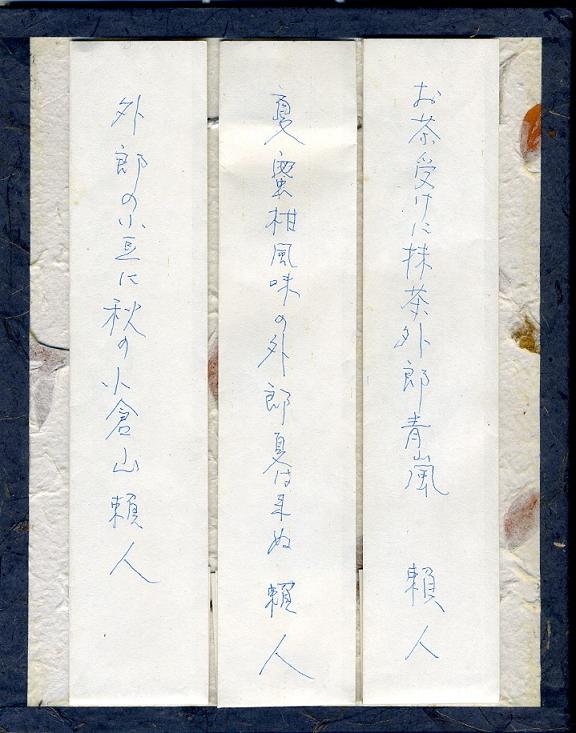 お茶受けに抹茶外郎青嵐 頼人
夏蜜柑風味の外郎夏は来ぬ 頼人
外郎の小豆に秋の小倉山 頼人